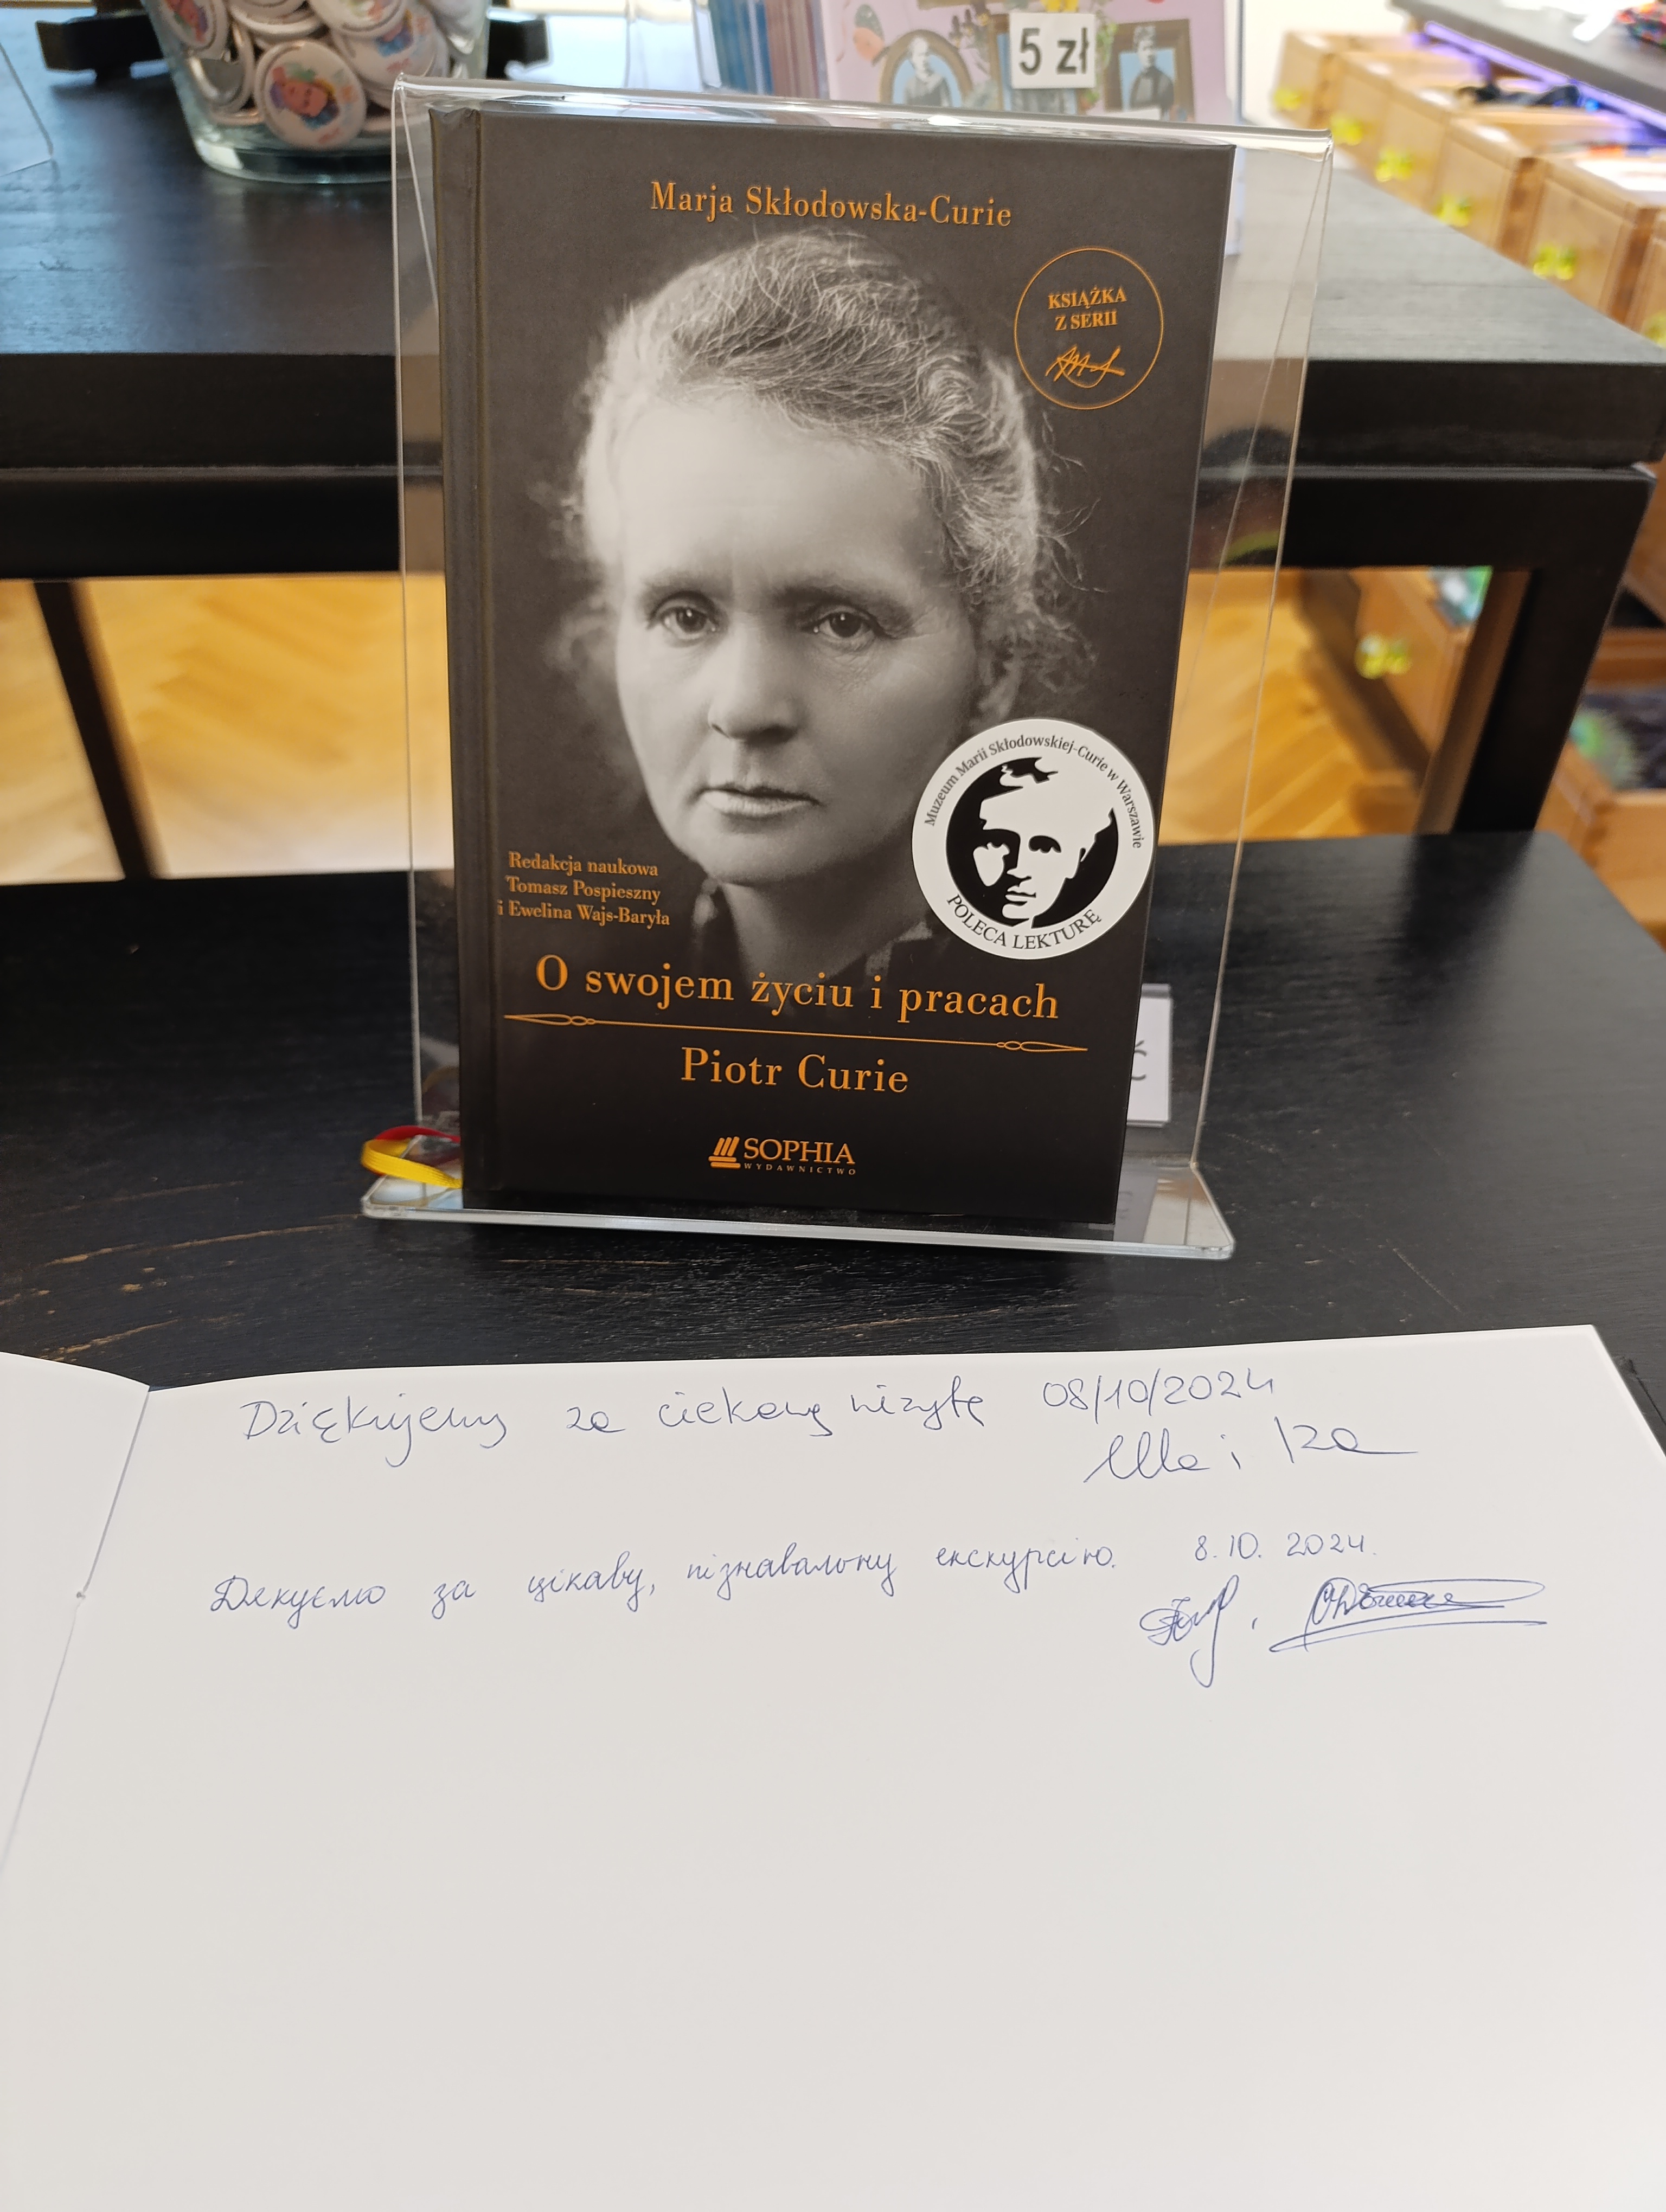 5 zł
Marja Skłodowska-Curie
KSIĄŻKA
Z SERII
Muzeum Marii Skłodowskiej-Curie w Warszawie
POLECA LEKTURĘ
Redakcja naukowa
Tomasz Pospieszny
i Ewelina Wajs-Baryła
O swojem życiu i pracach
Piotr Curie
SOPHIA
WYDAWNICTWO
Ć
Dziękujemy za ciekawą wizytę 08/10/2024
i Iza
Дякуємо за цікаву, пізнавальну екскурсію. 8.10.2024.